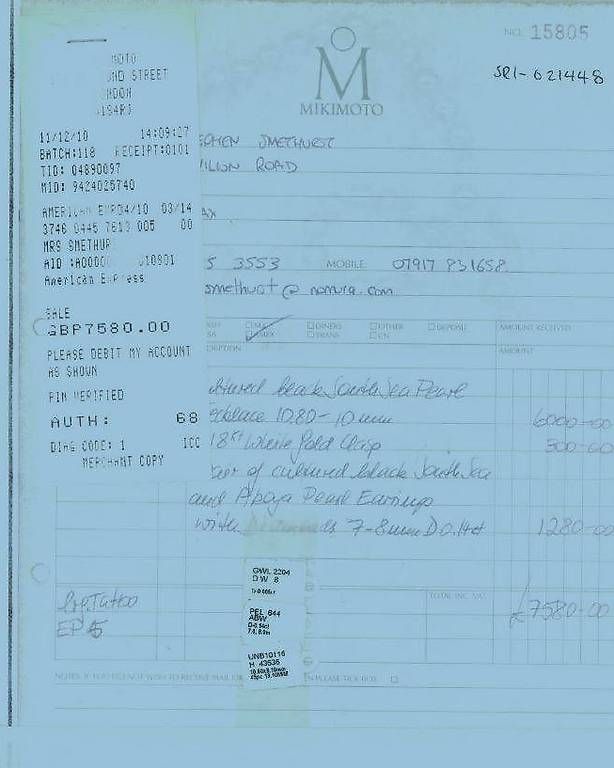 NO. 15805
SRI-621448
M
MIKIMOTO
MOTO
ND STREET
NDON
11/12/10 14:09:27
BATCH:118 RECEIPT:0101
TID: 04890097
MID: 9424025740
AMERICAN EXP 04/10 03/14
3746 0445 7613 005 00
MRS SMETHUR
AID :A0000 010801
American Express
SALE
GBP7580.00
PLEASE DEBIT MY ACCOUNT
AS SHOWN
PIN VERIFIED
AUTH: 68
DIAG CODE: 1 ICC
MERCHANT COPY
EPHEN SMETHURST
ROAD
5 3553 MOBILE 07917 831658
smethurst@nomura.com
DINERS OTHER DEPOSIT AMOUNT RECEIVED
AMOUNT
ltured black South Sea Pearl
ecklace 10.80-10mm 6000-00
18KT White Gold Clasp 300-00
of cultured black South Sea
and Akoya Pearl Earrings
with 7-8mm D0.14ct 1280-00
GWL 2204
D W 8
PEL 644
ABW
UNB10116
H 43535
EP
TOTAL INC. VAT £7580-00
NOTES: IF YOU DO NOT WISH TO RECEIVE MAIL PLEASE TICK BOX